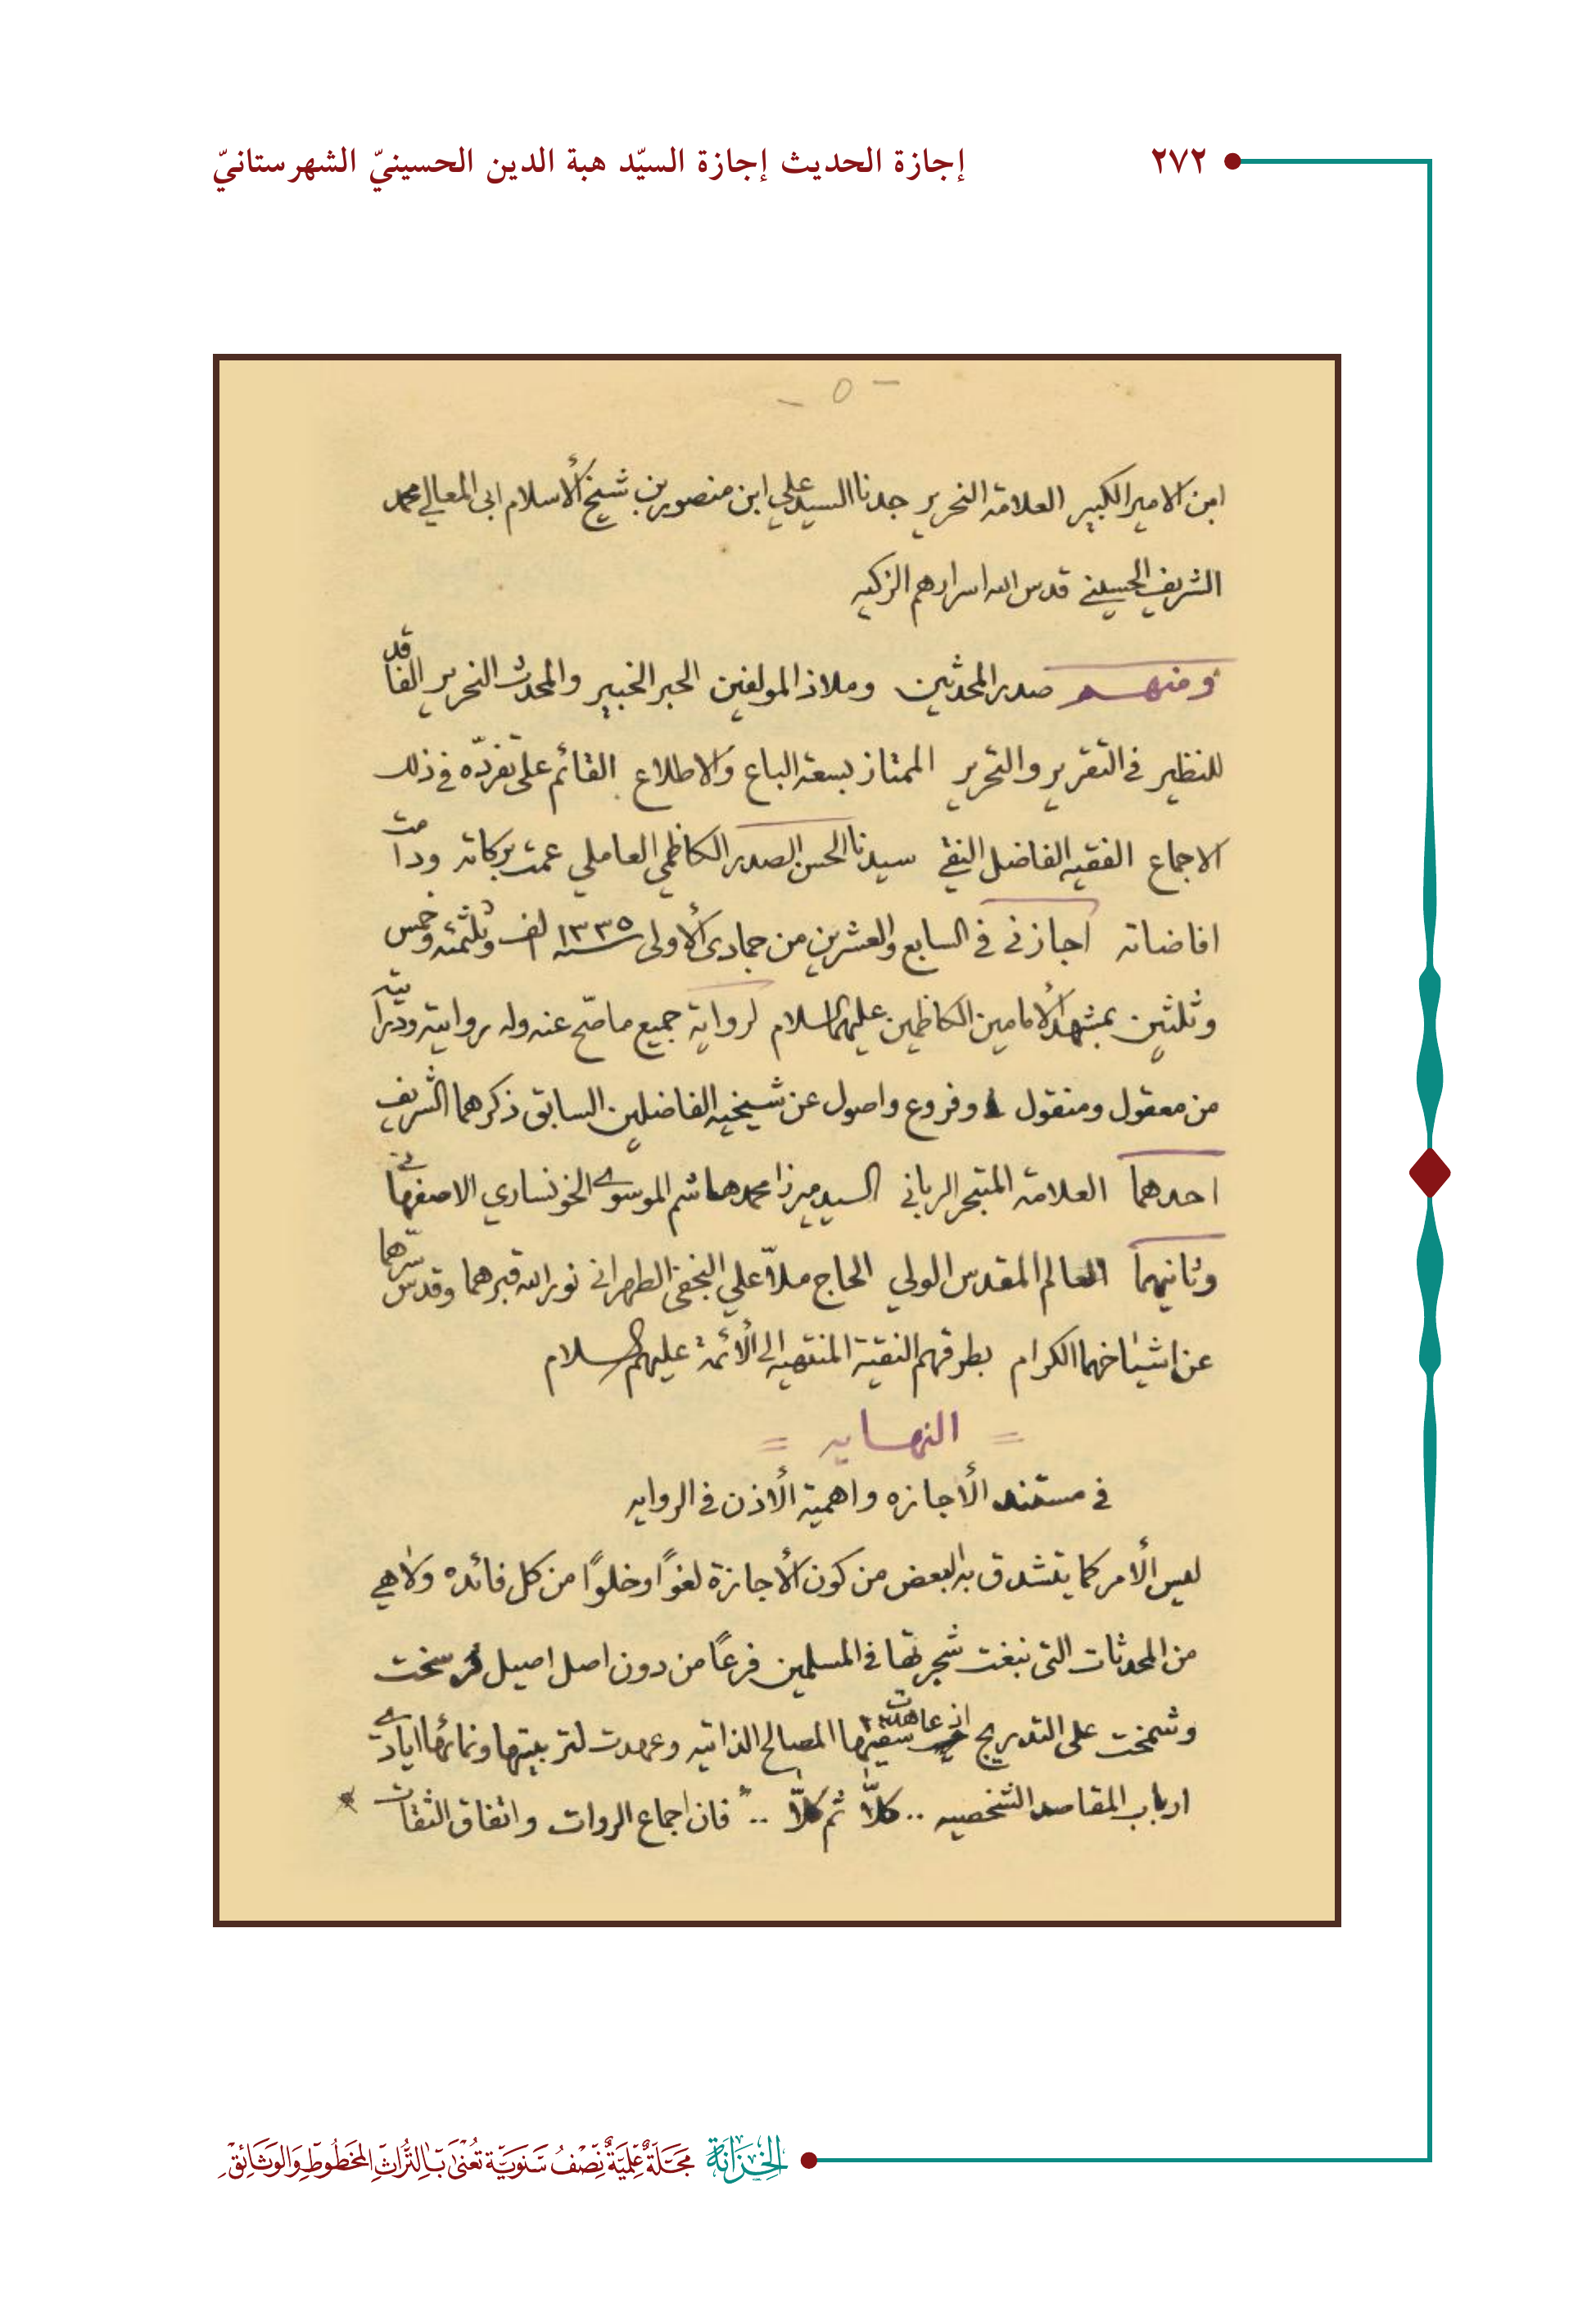 ٢٧٢ إجازة الحديث إجازة السيّد هبة الدين الحسينيّ الشهرستانيّ
- ٥ -
ابن الامير الكبير العلامة النحرير جدنا السيد علي ابن منصور بن شيخ الأسلام ابى المعالي محمد
الشريف الحسيني قدس الله اسرارهم الزكيه
ومنهم صدر المحدثين وملاذ المولفين الحبر الخبير والمحدث النحرير الفاقد
للنظير في التقرير والتحرير الممتاز بسعة الباع والاطلاع القائم على تفرّده في ذلك
الاجماع الفقيه الفاضل النقي سيدنا الحسن الصدر الكاظمي العاملي عمت بركاته ودامت
افاضاته اجازني في السابع والعشرين من جمادى الأولى سنه ١٣٣٥ لف وثلثمئه وخمس
وثلثين بمشهد الأمامين الكاظمين عليهما السلام لرواية جميع ما صّح عنه وله روايته ودرايته
من معقول ومنقول وفروع واصول عن شيخيه الفاضلين السابق ذكرهما الشريف
احدهما العلامة المتبحر الرباني السيد ميرزا محمد هاشم الموسوي الخونساري الاصفهاني
وثانيهما العالم المقدس الولي الحاج ملاّ علي النجفي الطهراني نور الله قبرهما وقدس سّرهما
عن اشياخهما الكرام بطرقهم النقية المنتهيه الى الأئمة عليهم السلام
= النهايه =
في مستند الأجازه واهمية الأذن في الروايه
ليس الأمر كما يتشدق به البعض من كون الأجازة لغوًا وخلوًا من كل فائده ولا هي
من المحدثات التي نبغت شجرتها في المسلمين فرعًا من دون اصل اصيل فرسخت
وشمخت على التدريج اذ عاهدت سقيها المصالح الذاتيه وعهدت لتربيتها ونمائها ايادي
ارباب المقاصد الشخصيه .. كلاّ ثم كلاّ .. فان اجماع الروات واتفاق الثقات
الخِزَانَة مَجَلَّةٌ عِلْمِيَّةٌ نِصْفُ سَنَوِيَّة تُعْنَى بِالتُّرَاثِ المَخْطُوطِ وَالوَثَائِق